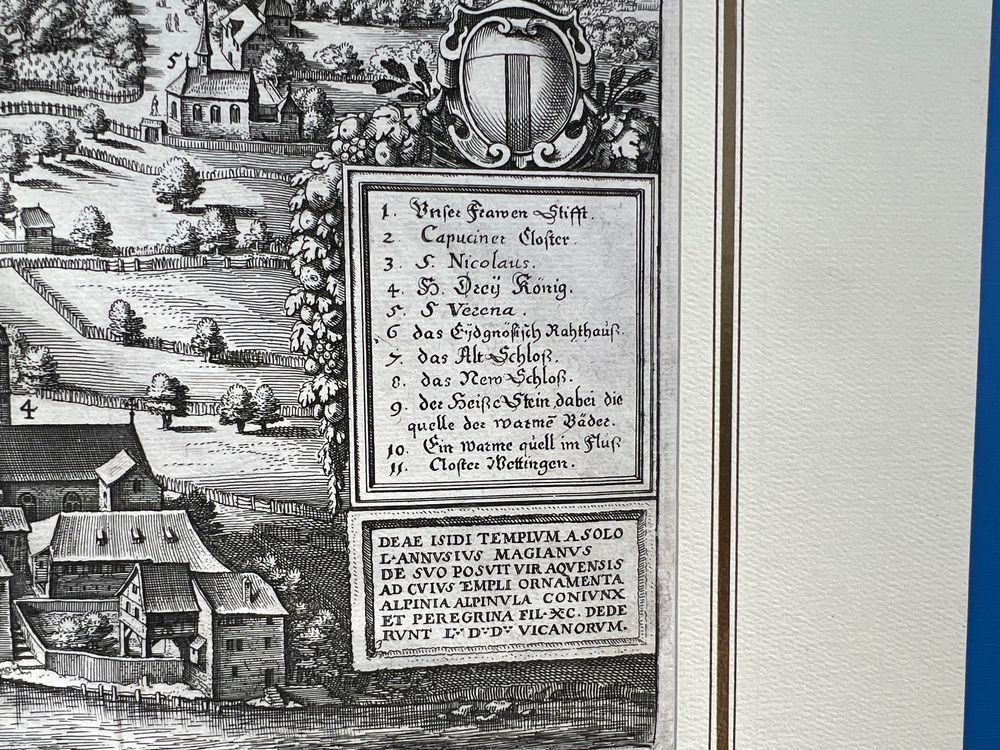 5
1. Vnser Frawen Stifft.
2 Capuciner Closter.
3 S. Nicolaus.
4. H. Dreij König.
5. S Verena.
6 das Eijdgnösisch Rahthauß.
7. das Alt Schloß.
8. das New Schloß.
9. der Heiße Stein, dabei die
quelle der warmē Bäder.
10. Ein warme quell im Fluß
11. Closter Wettingen.
4
DEAE ISIDI TEMPLVM A SOLO
L·ANNVSIVS MAGIANVS
DE SVO POSVIT VIR AQVENSIS
AD CVIVS TEMPLI ORNAMENTA
ALPINIA ALPINVLA CONIVNX
ET PEREGRINA FIL·XC. DEDE
RVNT L·D·D· VICANORVM.